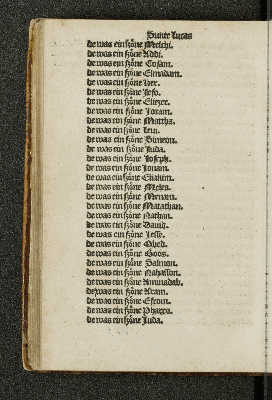 Sunte Lucas
de was ein szōne Melchi.
de was ein szōne Addi.
de was ein szōne Cosam.
de was ein szōne Elmadam.
de was ein szōne Her.
de was ein szōne Jeso.
de was ein szōne Eliezer.
de was ein szōne Joram.
de was ein szōne Mattha.
de was ein szōne Leui.
de was ein szōne Simeon.
de was ein szōne Juda.
de was ein szōne Joseph.
de was ein szōne Jonam.
de was ein szōne Eliakim.
de was ein szōne Melea.
de was ein szōne Mennam.
de was ein szōne Matathan.
de was ein szōne Nathan.
de was ein szōne Dauid.
de was ein szōne Jesse.
de was ein szōne Obed.
de was ein szōne Boos.
de was ein szōne Salmon.
de was ein szōne Nahasson.
de was ein szōne Aminadab.
de was ein szōne Aram.
de was ein szōne Esrom.
de was ein szōne Phares.
de was ein szōne Juda.